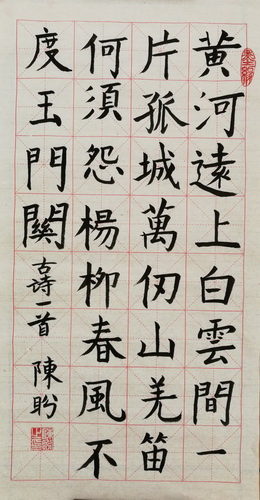 黃河遠上白雲間一
片孤城萬仞山羌笛
何須怨楊柳春風不
度玉門關
古诗一首 陳盼